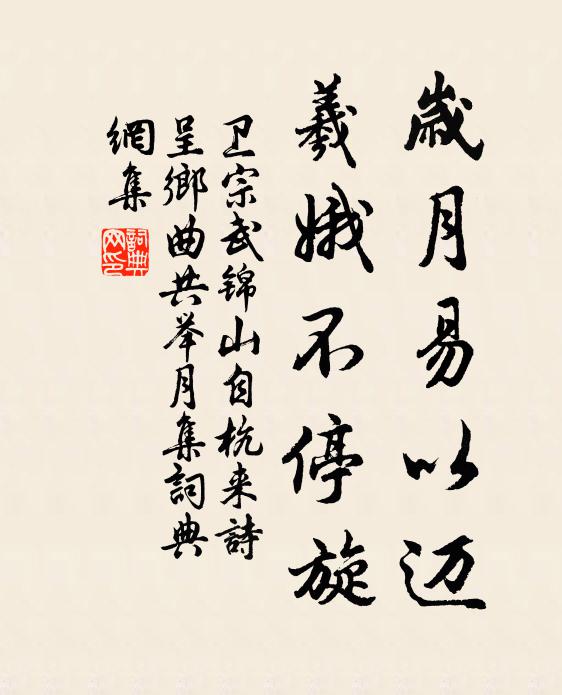 歲月易以迈
羲娥不停旋
卫宗武錦山自杭来詩
呈鄉曲共举月集詞典
網集
詞典網印